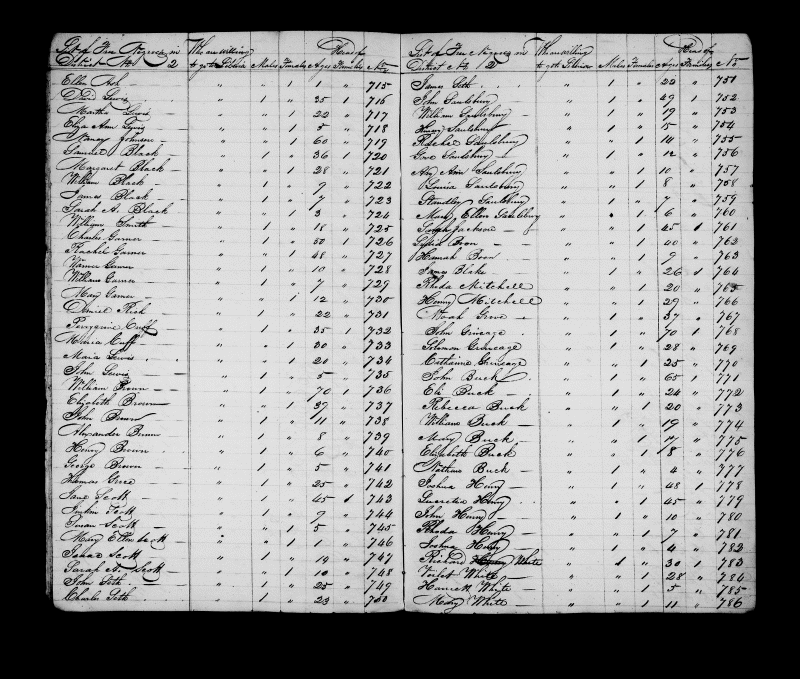 List of Free Negroes in District No. 2 Who are willing to go to Liberia Males Females Ages Head of Families No.
Ellen " " 1 1 " 715
David Lewis " 1 " 35 1 716
Martha Lewis " " 1 22 " 717
Eliza Ann Lewis " " 1 5 " 718
Nancy Johnson " " 1 60 " 719
Samuel Black " 1 " 36 1 720
Margaret Black " " 1 28 " 721
William Black " 1 " 9 " 722
James Black " 1 " 7 " 723
Sarah A. Black " " 1 3 " 724
William Smith " 1 " 18 " 725
Charles Garner " 1 " 50 1 726
Rachel Garner " " 1 48 " 727
Garner " 1 " 10 " 728
William Garner " 1 " 7 " 729
Mary Garner " " 1 12 " 730
Daniel Rich " 1 " 22 " 731
Perygrine Cuff " 1 " 35 1 732
Maria Cuff " " 1 30 " 733
Maria Lewis " " 1 20 " 734
John Lewis " 1 " 5 " 735
William Brown " 1 " 70 1 736
Elizabeth Brown " " 1 39 " 737
John Brown " 1 " 11 " 738
Alexander Brown " 1 " 8 " 739
Henry Brown " 1 " 6 " 740
George Brown " 1 " 5 " 741
" 1 " 25 " 742
Scott " 1 " 45 1 743
Scott " 1 " 9 " 744
Susan Scott " " 1 5 " 745
Mary Ellen Scott " " 1 1 " 746
Isaac Scott " 1 " 19 " 747
Sarah A. Scott " " 1 10 " 748
John Seth " 1 " 25 " 749
Charles Seth " 1 " 23 " 750
List of Free Negroes in District No. 2 Who are willing to go to Liberia Males Females Ages Head of Families No.
James Seth " 1 " 22 " 751
John Saulsbury " 1 " 49 1 752
William Saulsbury " 1 " 19 " 753
Henry Saulsbury " 1 " 15 " 754
Rachel Saulsbury " " 1 14 " 755
Saulsbury " 1 " 12 " 756
Ann Saulsbury " " 1 10 " 757
Louisa Saulsbury " " 1 8 " 758
Standley Saulsbury " 1 " 7 " 759
Mary Ellen Saulsbury " " 1 6 " 760
Joseph Jackson " 1 " 45 1 761
Lydia Boon " " 1 40 " 762
Hannah Boon " " 1 9 " 763
James Blake " 1 " 26 1 764
Rhoda Mitchell " " 1 20 " 765
Henry Mitchell " 1 " 29 " 766
Noah " 1 " 37 " 767
John Grineage " 1 " 70 1 768
Solomon Grineage " 1 " 28 " 769
Catharine Grineage " " 1 25 " 770
John Buck " 1 " 65 1 771
Eli Buck " 1 " 24 " 772
Rebecca Buck " " 1 20 " 773
William Buck " 1 " 19 " 774
Mary Buck " " 1 17 " 775
Elizabeth Buck " " 1 8 " 776
Nathan Buck " 1 " 4 " 777
Joshua Henry " 1 " 48 1 778
Lucretia Henry " " 1 45 " 779
John Henry " 1 " 10 " 780
Rhoda Henry " " 1 7 " 781
Joshua Henry " 1 " 4 " 782
Richard White " 1 " 30 1 783
Violet White " " 1 28 " 784
Harriett White " " 1 5 " 785
Mary White " " 1 11 " 786